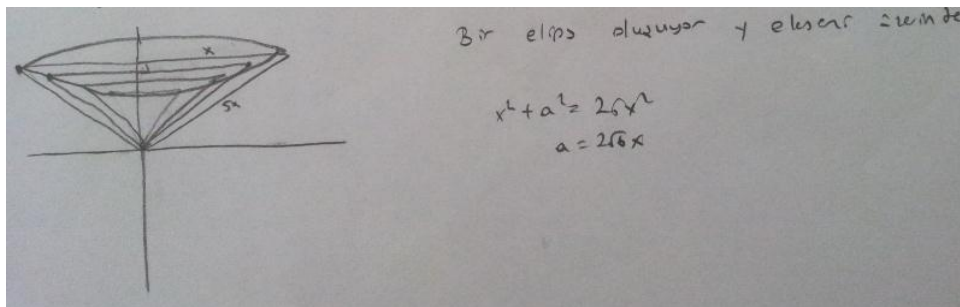 Bir elips oluşuyor y ekseni üzerinde
x² + a² = 25x²
a = 2√6 x
x
5x